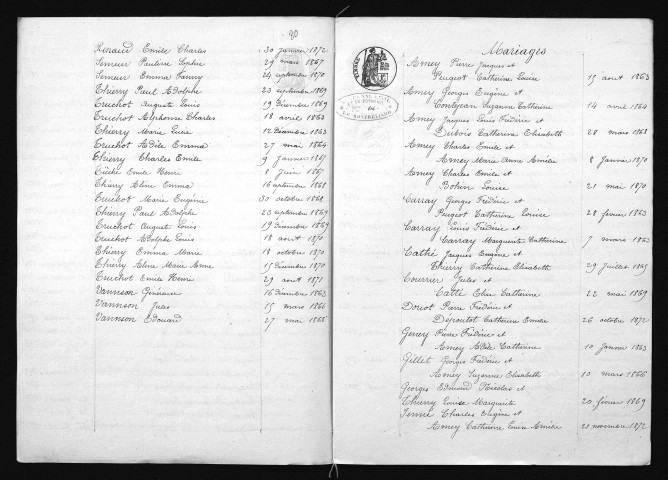 20
Renaud Emile Charles 30 janvier 1872
Semeur Pauline Sophie 29 mars 1867
Semeur Emma Fanny 24 septembre 1870
Thierry Paul Adolphe 23 septembre 1869
Truchot Auguste Louis 19 Décembre 1869
Truchot Alphonse Charles 18 avril 1863
Thierry Marie Lucie 12 Décembre 1863
Truchot Adèle Emma 27 mai 1864
Thierry Charles Emile 9 Janvier 1867
Emile Henri 8 Juin 1867
Thiery Aline Emma 16 septembre 1868
Truchot Marie Eugénie 30 octobre 1868
Thierry Paul Adolphe 23 septembre 1869
Truchot Auguste Louis 19 Décembre 1869
Truchot Adolphe Louis 18 aout 1870
Thierry Emma Marie 18 octobre 1870
Thierry Aline Marie Anne 15 Décembre 1870
Truchot Emile Henri 29 aout 1871
Vannson Générose 16 Décembre 1863
Vannson Jules 15 mars 1866
Vannson Edouard 27 mai 1868
Mariages
Amey Pierre Jacques et
Peugeot Catherine Louise 15 aout 1863
Amey Georges Eugène et
Contejean Suzanne Catherine 14 avril 1864
Amey Jacques Louis Frédéric et
Dubois Catherine Elisabeth 28 mars 1868
Amey Charles Emile et
Amey Marie Anne Amélie 8 Janvier 1870
Amey Charles Emile et
Bohin Louise 21 mai 1870
Carray Georges Frédéric et
Peugeot Catherine Louise 28 février 1863
Carray Louis Frédéric et
Carray Marguerite Catherine 7 mars 1863
Cattié Jacques Eugène et
Thierry Catherine Elisabeth 29 Juillet 1865
Courrier Jules et
Catté Elise Catherine 22 mai 1869
Doriot Pierre Frédéric et
Dépoutot Catherine Emilie 26 octobre 1872
Geney Pierre Frédéric et
Amey Adèle Catherine 10 Janvier 1863
Gillet Georges Frédéric et
Amey Suzanne Elisabeth 10 mars 1866
Georges Edmond Nicolas et
Thierry Louise Marguerite 20 février 1869
Jenné Charles Eugène et
Amey Catherine Louise Amélie 20 novembre 1872